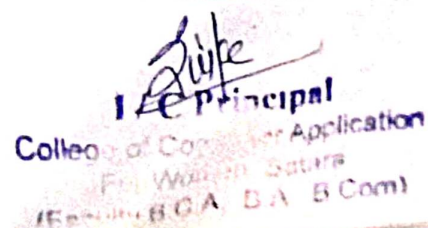 I/C Principal
College of Computer Application
For Women, Satara
(Faculty B.C.A. B.A. B.Com)